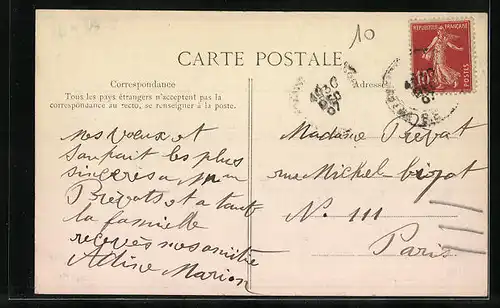 10
REPUBLIQUE FRANÇAISE
POSTES
CARTE POSTALE
Correspondance
Tous les pays étrangers n'acceptent pas la
correspondance au recto, se renseigner à la poste.
Adresse
nos voeux et
souhait les plus
sincères a
Prevots et a toute
la familile
recevés nos amitie
Marion
Madame Prevat
rue Michel bizot
N. 111
Paris